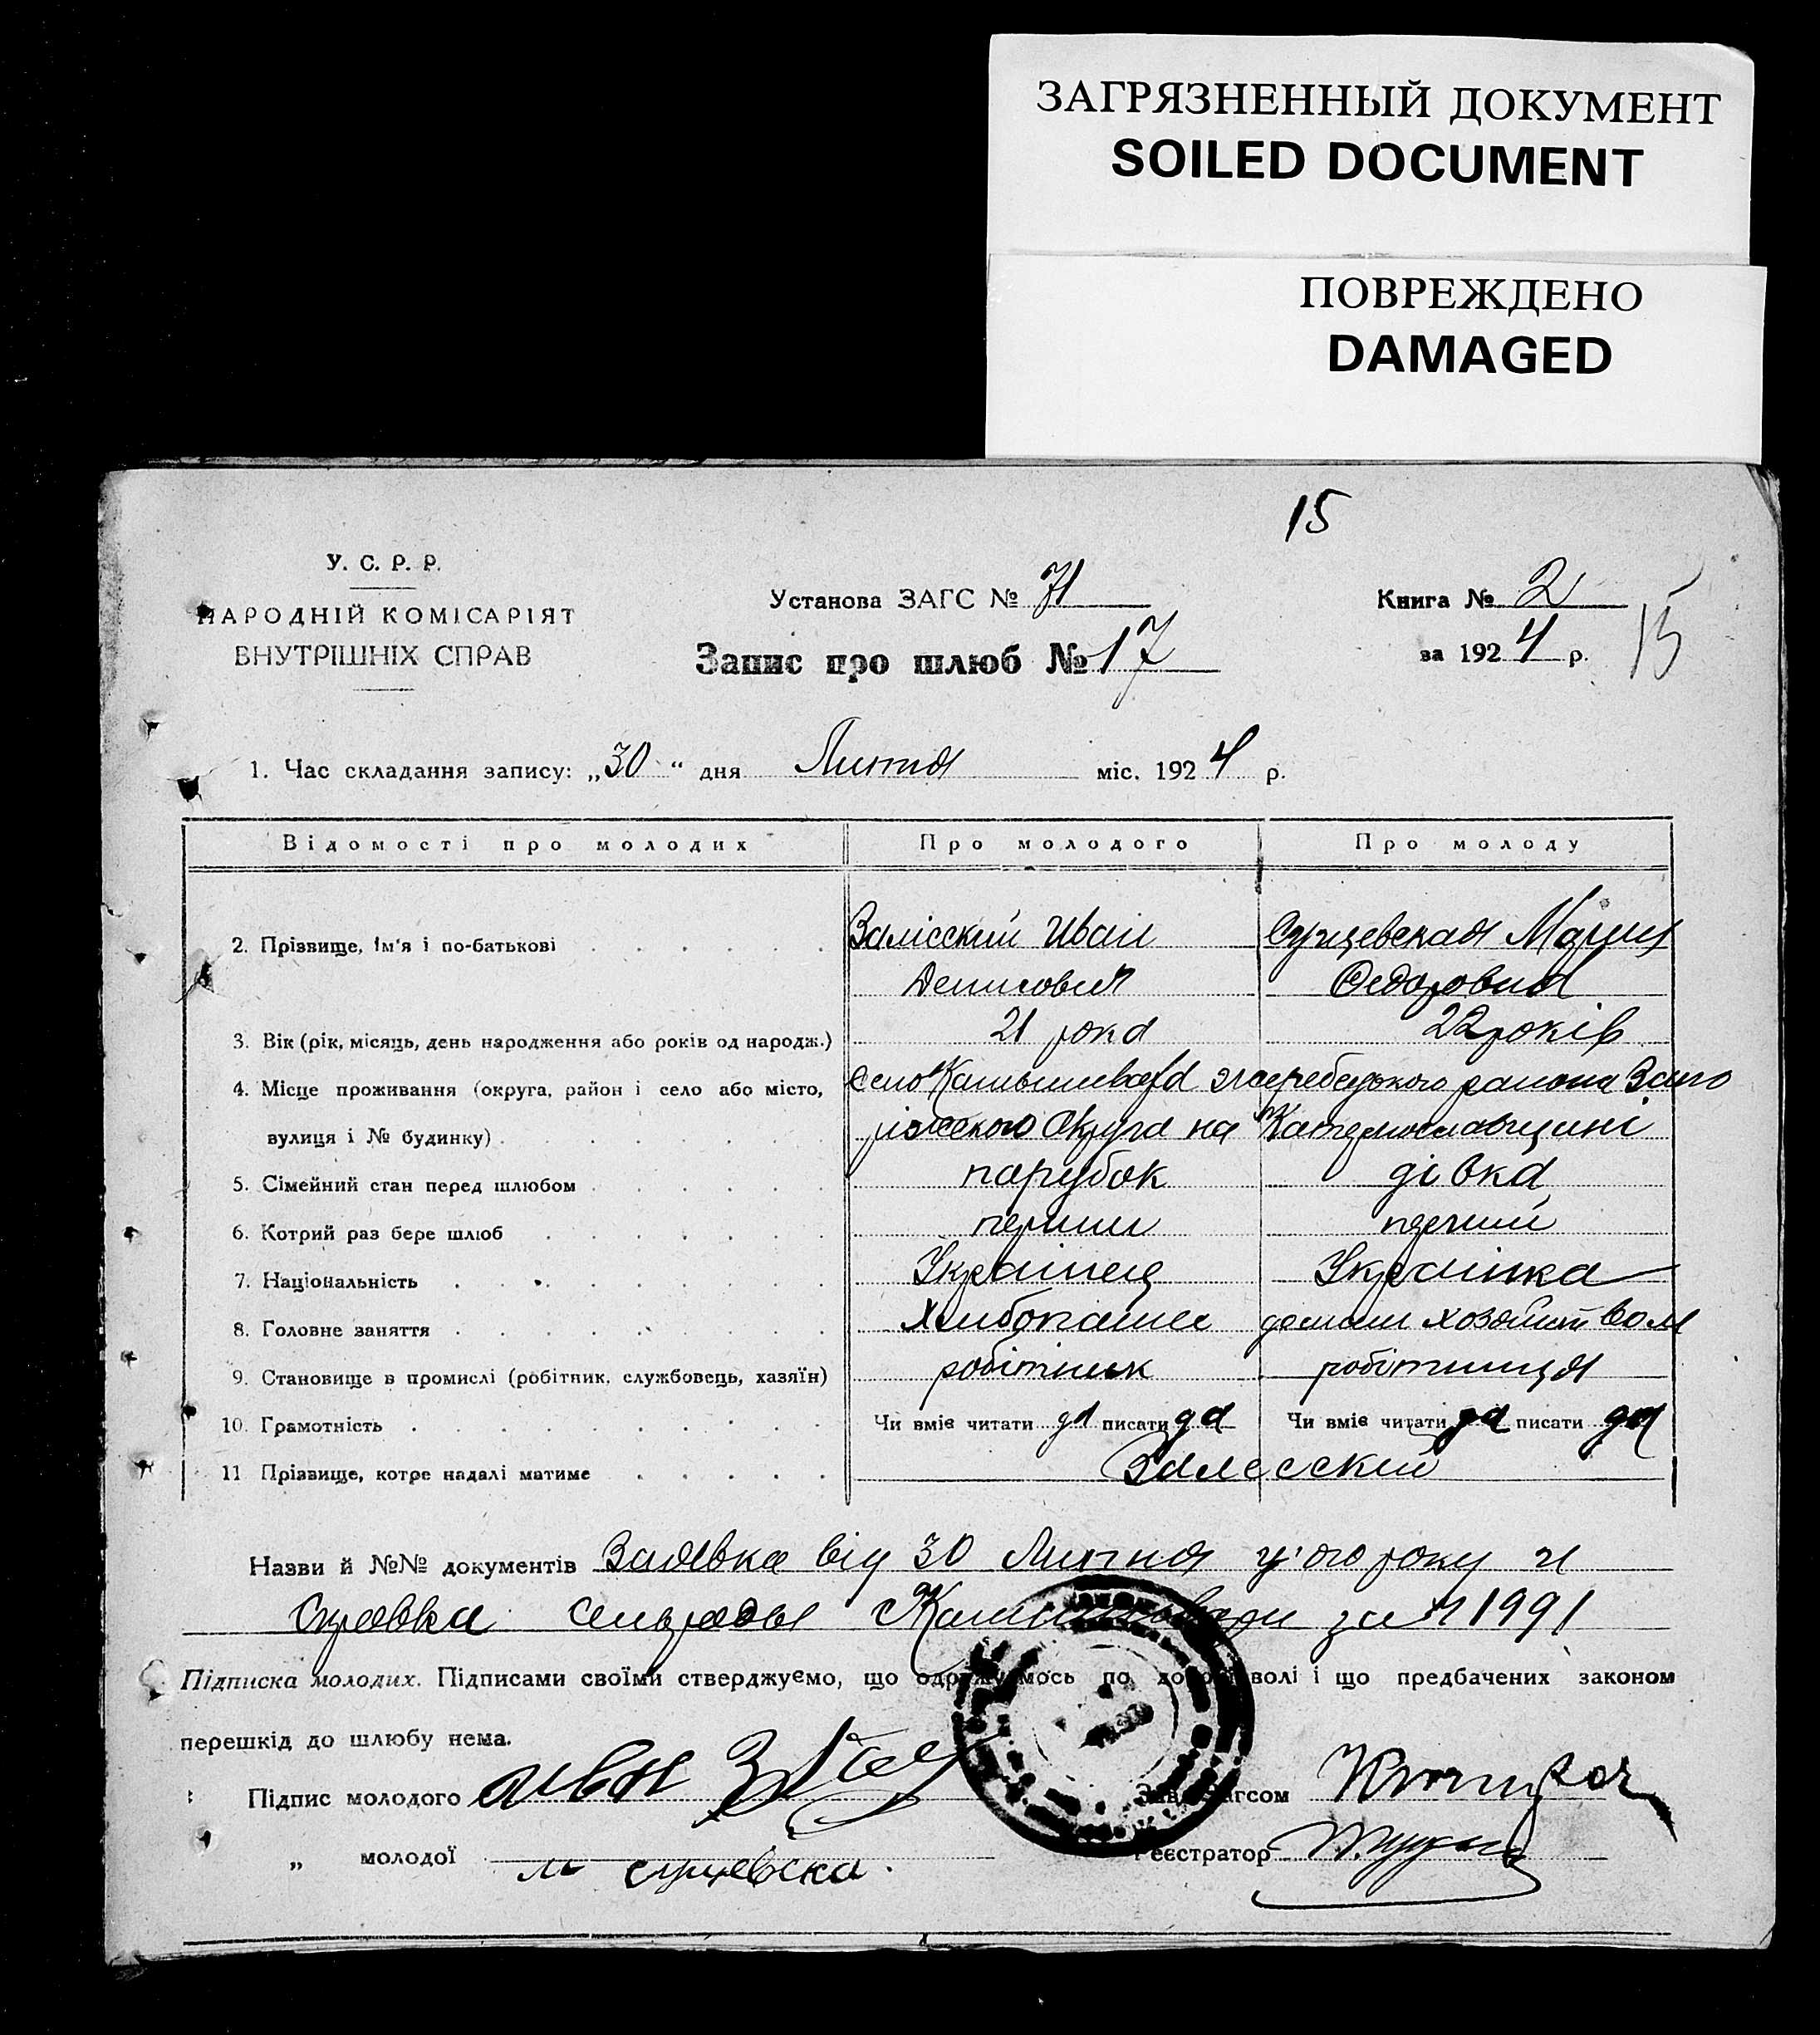 ЗАГРЯЗНЕННЫЙ ДОКУМЕНТ
SOILED DOCUMENT
ПОВРЕЖДЕНО
DAMAGED
15
У. С. Р. Р.
НАРОДНІЙ КОМІСАРІЯТ
ВНУТРІШНІХ СПРАВ
Установа ЗАГС № 71
Книга № 2
Запис про шлюб № 17
за 1924 р.
15
1. Час складання запису: „30“ дня міс. 1924 р.
Відомості про молодих Про молодого Про молоду
2. Прізвище, ім'я і по-батькові Залісский Иван Мария
Денисович Федоровна
3. Вік (рік, місяць, день народження або років од народж.) 21 рока 22 років
4. Місце проживання (округа, район і село або місто, село района Запо
вулиця і № будинку) ріжского Округа на Катеринославщині
5. Сімейний стан перед шлюбом парубок дівка
6. Котрий раз бере шлюб перший перший
7. Національність Українец Українка
8. Головне заняття
9. Становище в промислі (робітник, службовець, хазяїн) робітник робітниця
10. Грамотність Чи вміє читати да писати да Чи вміє читати да писати да
11 Прізвище, котре надалі матиме Залесский
Назви й №№ документів Заявка від 30 ц'ого року и
Справка за № 1991
Підписка молодих. Підписами своїми стверджуємо, що одружуємось по добрій волі і що предбачених законом
перешкід до шлюбу нема.
Підпис молодого Зав. Загсом
„ молодої Реєстратор